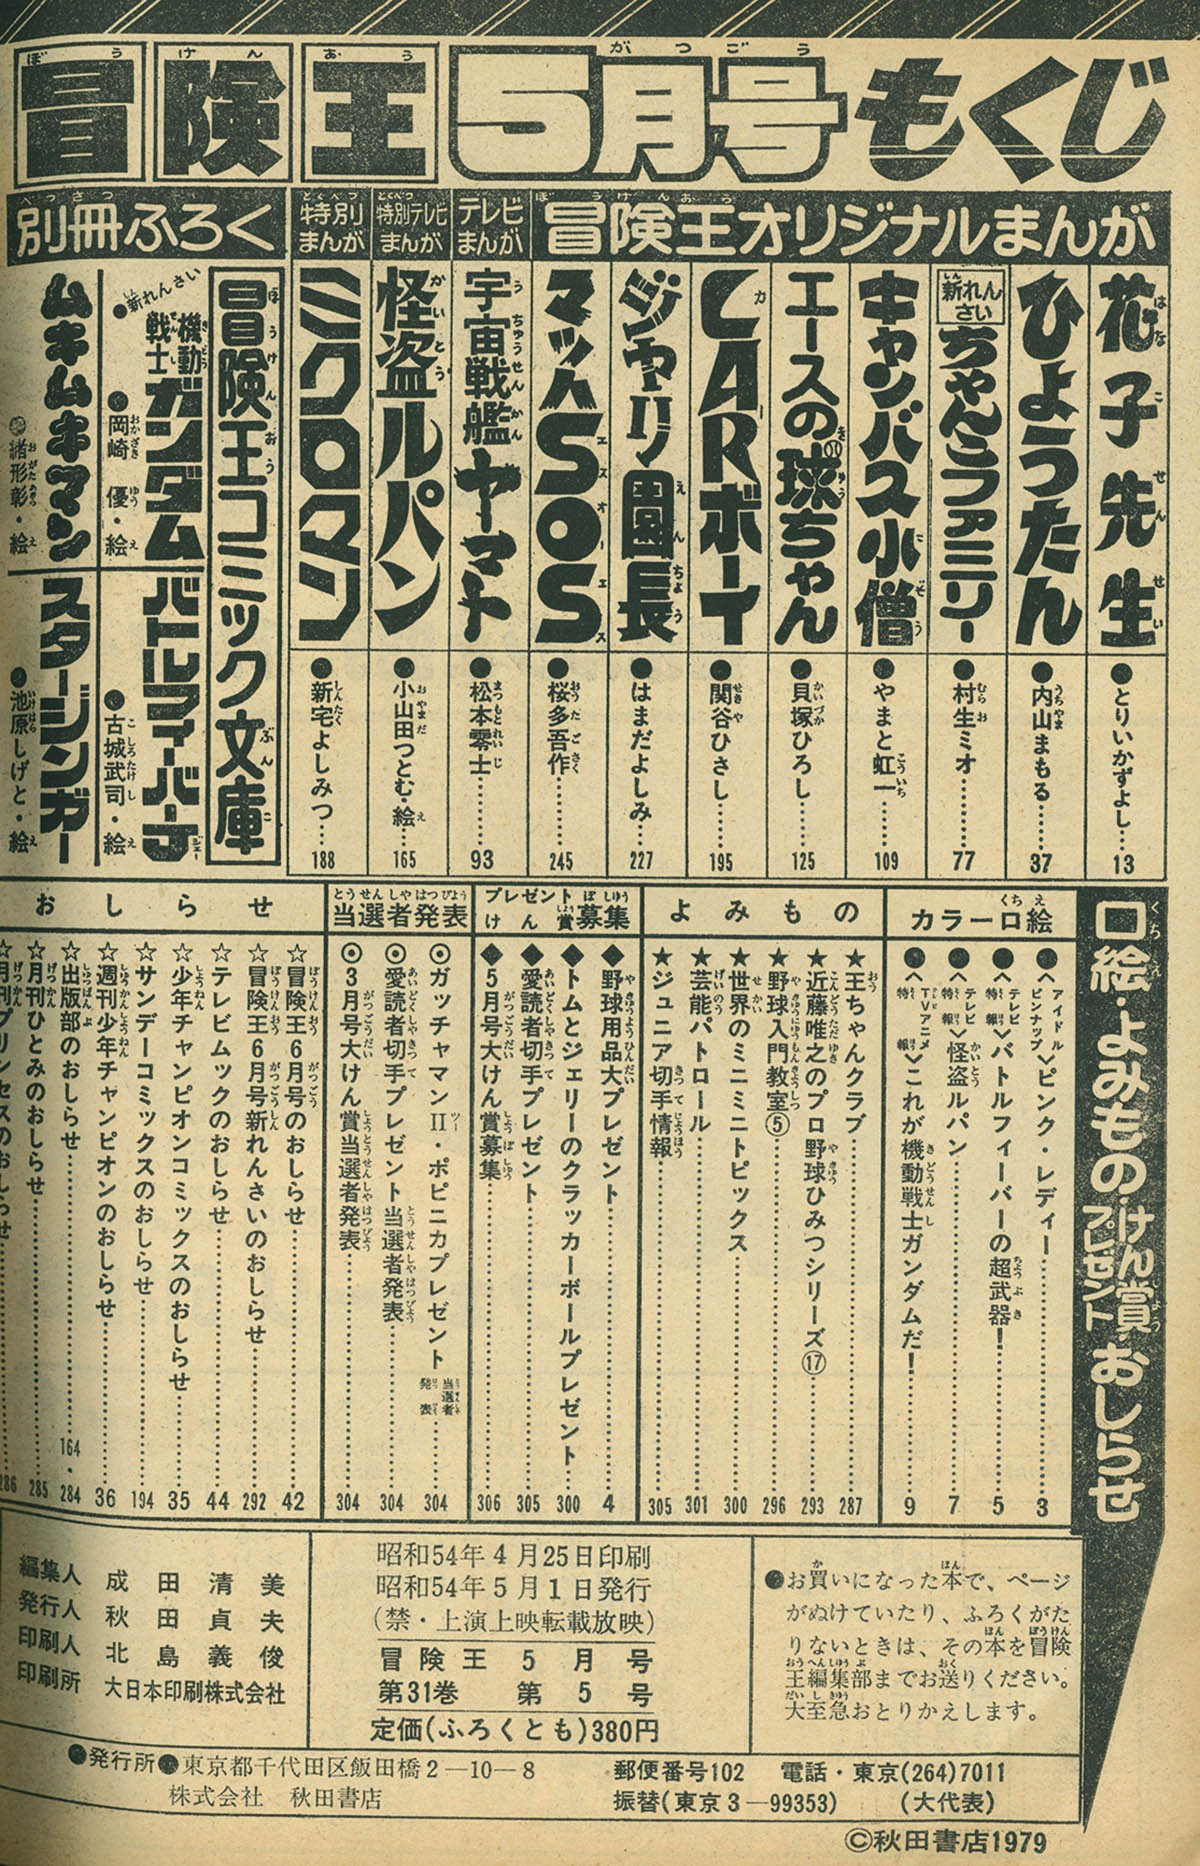 冒険王 5月号 もくじ
冒険王オリジナルまんが
花子先生 ●とりいかずよし……13
ひょうたん ●内山まもる……37
新れんさい ちゃんこファミリー ●村生ミオ……77
キャンバス小僧 ●やまと虹一……109
エースの球ちゃん ●貝塚ひろし……125
CARボーイ ●関谷ひさし……195
ジャリ園長 ●はまだよしみ……227
マッハSOS ●桜多吾作……245
テレビまんが
宇宙戦艦ヤマト ●松本零士……93
特別テレビまんが
怪盗ルパン ●小山田つとむ・絵……165
特別まんが
ミクロマン ●新宅よしみつ……188
別冊ふろく
冒険王コミック文庫
●新れんさい 機動戦士ガンダム ●岡崎 優・絵
バトルフィーバーJ ●古城武司・絵
ムキムキマン ●緒形彰・絵
スタージンガー ●池原しげと・絵
口絵・よみもの・けん賞・プレゼント・おしらせ
カラー口絵
●〈アイドルピンナップ〉ピンク・レディー……3
●〈テレビ特報〉バトルフィーバーの超武器！……5
●〈テレビ特報〉怪盗ルパン……7
●〈TVアニメ特報〉これが機動戦士ガンダムだ！……9
よみもの
★王ちゃんクラブ……287
★近藤唯之のプロ野球ひみつシリーズ⑰……293
★野球入門教室⑤……296
★世界のミニミニトピックス……300
★芸能パトロール……301
★ジュニア切手情報……305
プレゼントけん賞募集
◆野球用品大プレゼント……4
◆トムとジェリーのクラッカーボールプレゼント……300
◆愛読者切手プレゼント……305
◆5月号大けん賞募集……306
当選者発表
◉ガッチャマンⅡ・ポピニカプレゼント当選者発表……304
◉愛読者切手プレゼント当選者発表……304
◉3月号大けん賞当選者発表……304
おしらせ
☆冒険王6月号のおしらせ……42
☆冒険王6月号新れんさいのおしらせ……292
☆テレビムックのおしらせ……44
☆少年チャンピオンコミックスのおしらせ……35
☆サンデーコミックスのおしらせ……194
☆週刊少年チャンピオンのおしらせ……36
☆出版部のおしらせ……164・284
☆月刊ひとみのおしらせ……285
☆月刊プリンセスのおしらせ……286
●お買いになった本で、ページ
がぬけていたり、ふろくがた
りないときは、その本を冒険
王編集部までお送りください。
大至急おとりかえします。
昭和54年4月25日印刷
昭和54年5月1日発行
(禁・上演上映転載放映)
冒険王5月号
第31巻 第5号
定価(ふろくとも)380円
編集人 成田清美
発行人 秋田貞夫
印刷人 北島義俊
印刷所 大日本印刷株式会社
●発行所●東京都千代田区飯田橋2—10—8
株式会社 秋田書店
郵便番号102 電話・東京(264)7011
振替(東京3—99353) (大代表)
©秋田書店1979